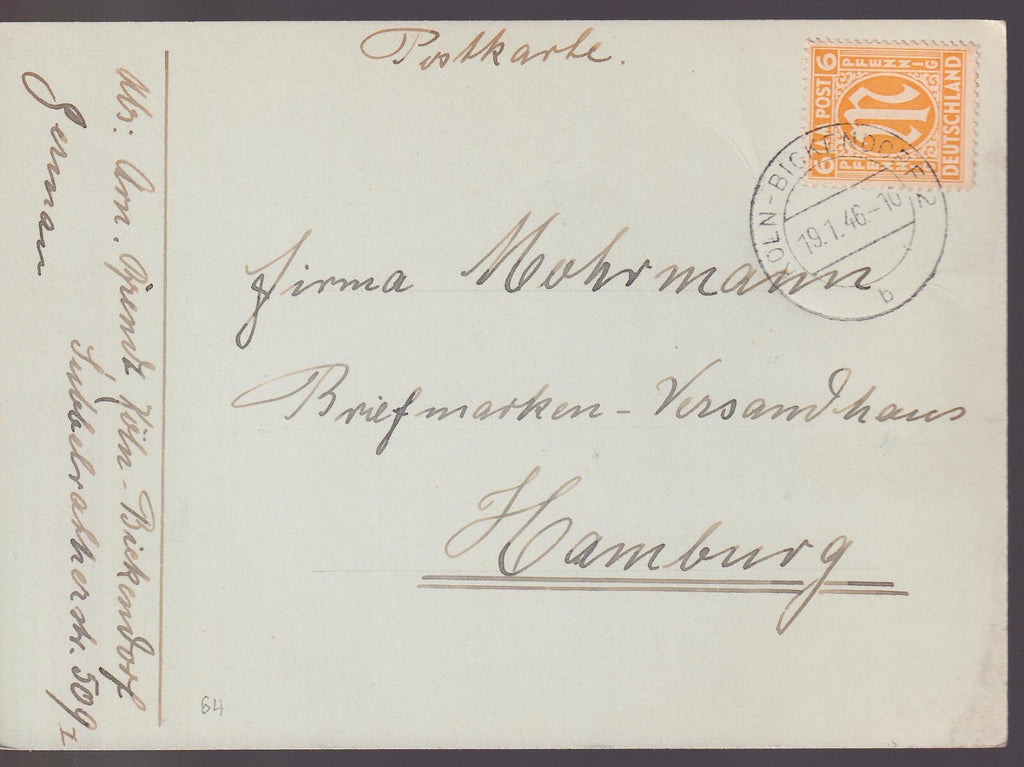 Postkarte.
6 PFENNIG 6
A.M. POST
DEUTSCHLAND
PFENNIG
KÖLN-BICKENDORF 2
19.1.46.-10
b
Firma Mohrmann
Briefmarken-Versandhaus
Hamburg
Abs: Arn. Köln-Bickendorf
Subbelratherstr. 509 I
German
64